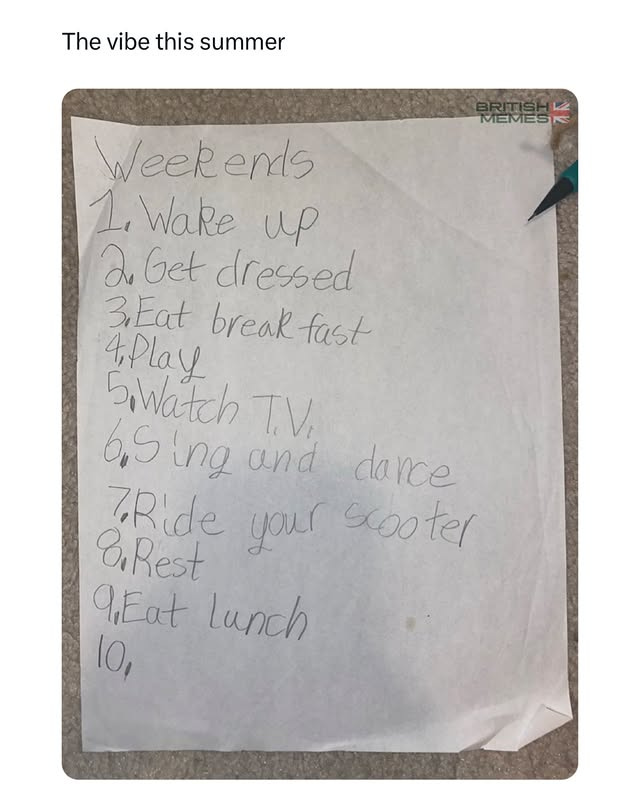 The vibe this summer
BRITISH
MEMES
Weekends
1. Wake up
2. Get dressed
3. Eat breakfast
4. Play
5. Watch T.V.
6. Sing and dance
7. Ride your scooter
8. Rest
9. Eat lunch
10.